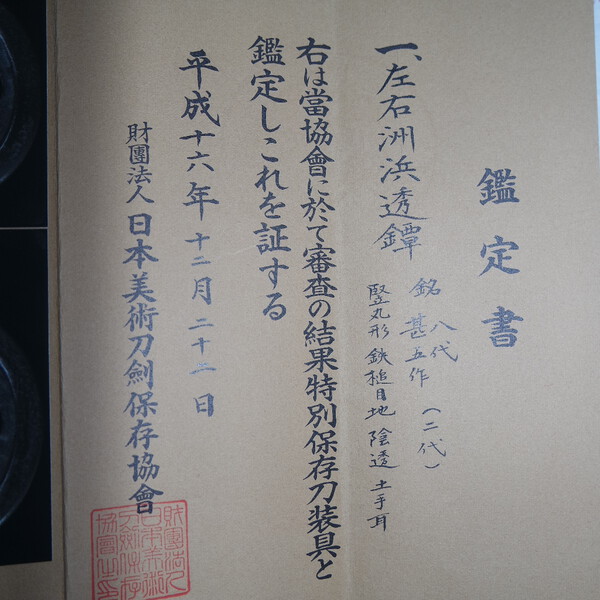 鑑定書
一、左右洲浜透鐔
銘 八代
甚五作 (二代)
竪丸形 鉄槌目地 陰透 土手耳
右は當協會に於て審査の結果特別保存刀装具と
鑑定しこれを証する
平成十六年 十二月 二十二日
財團法人 日本美術刀劍保存協會